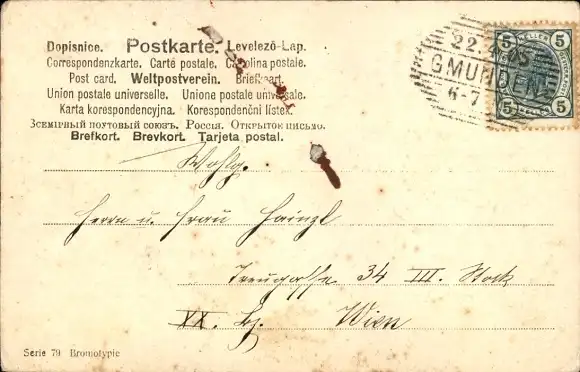 Dopisnice. Postkarte. Levelező-Lap.
Correspondenzkarte. Carte postale. Carolina postale.
Post card. Weltpostverein. Briefkaart.
Union postale universelle. Unione postale universale.
Karta korespondencyjna. Korespondenční lístek.
Всемірный почтовый союзъ. Россія. Открытое письмо.
Brefkort. Brevkort. Tarjeta postal.
5 HELLER 5
5 5
22.
GMUNDEN
6-7
Wohlg.
Herrn u. Frau Hainzl
34 III. Stock
XX. Bz. Wien
Serie 79 Bromotypie